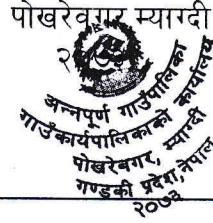 पोखरेवगर म्याग्दी
२
अन्नपूर्ण गाउँपालिका
गाउँकार्यपालिकाको कार्यालय
पोखरेबगर, म्याग्दी
गण्डकी प्रदेश, नेपाल
२०७३